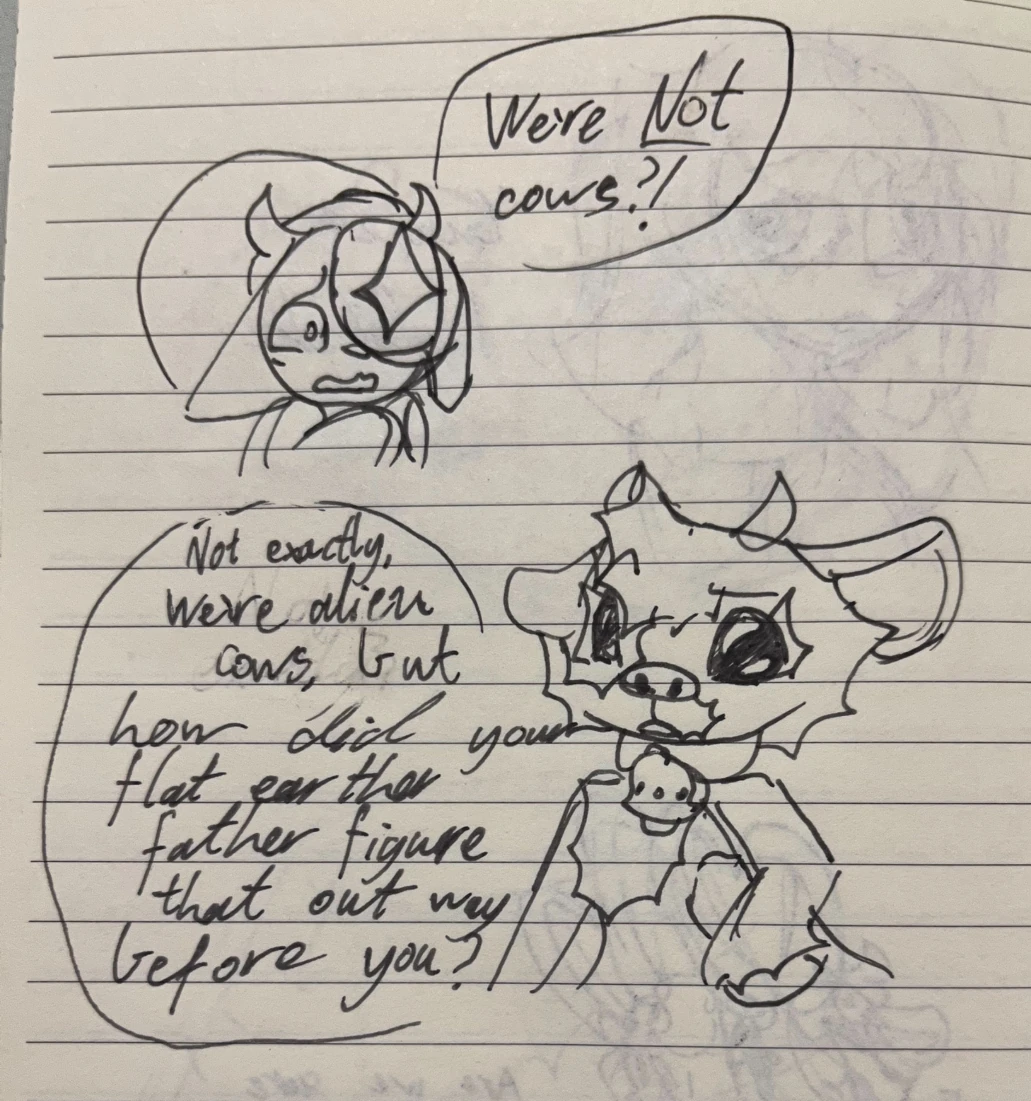 We're Not
cows?!
Not exactly,
we're alien
cows, but
how did your
flat earther
father figure
that out way
before you?